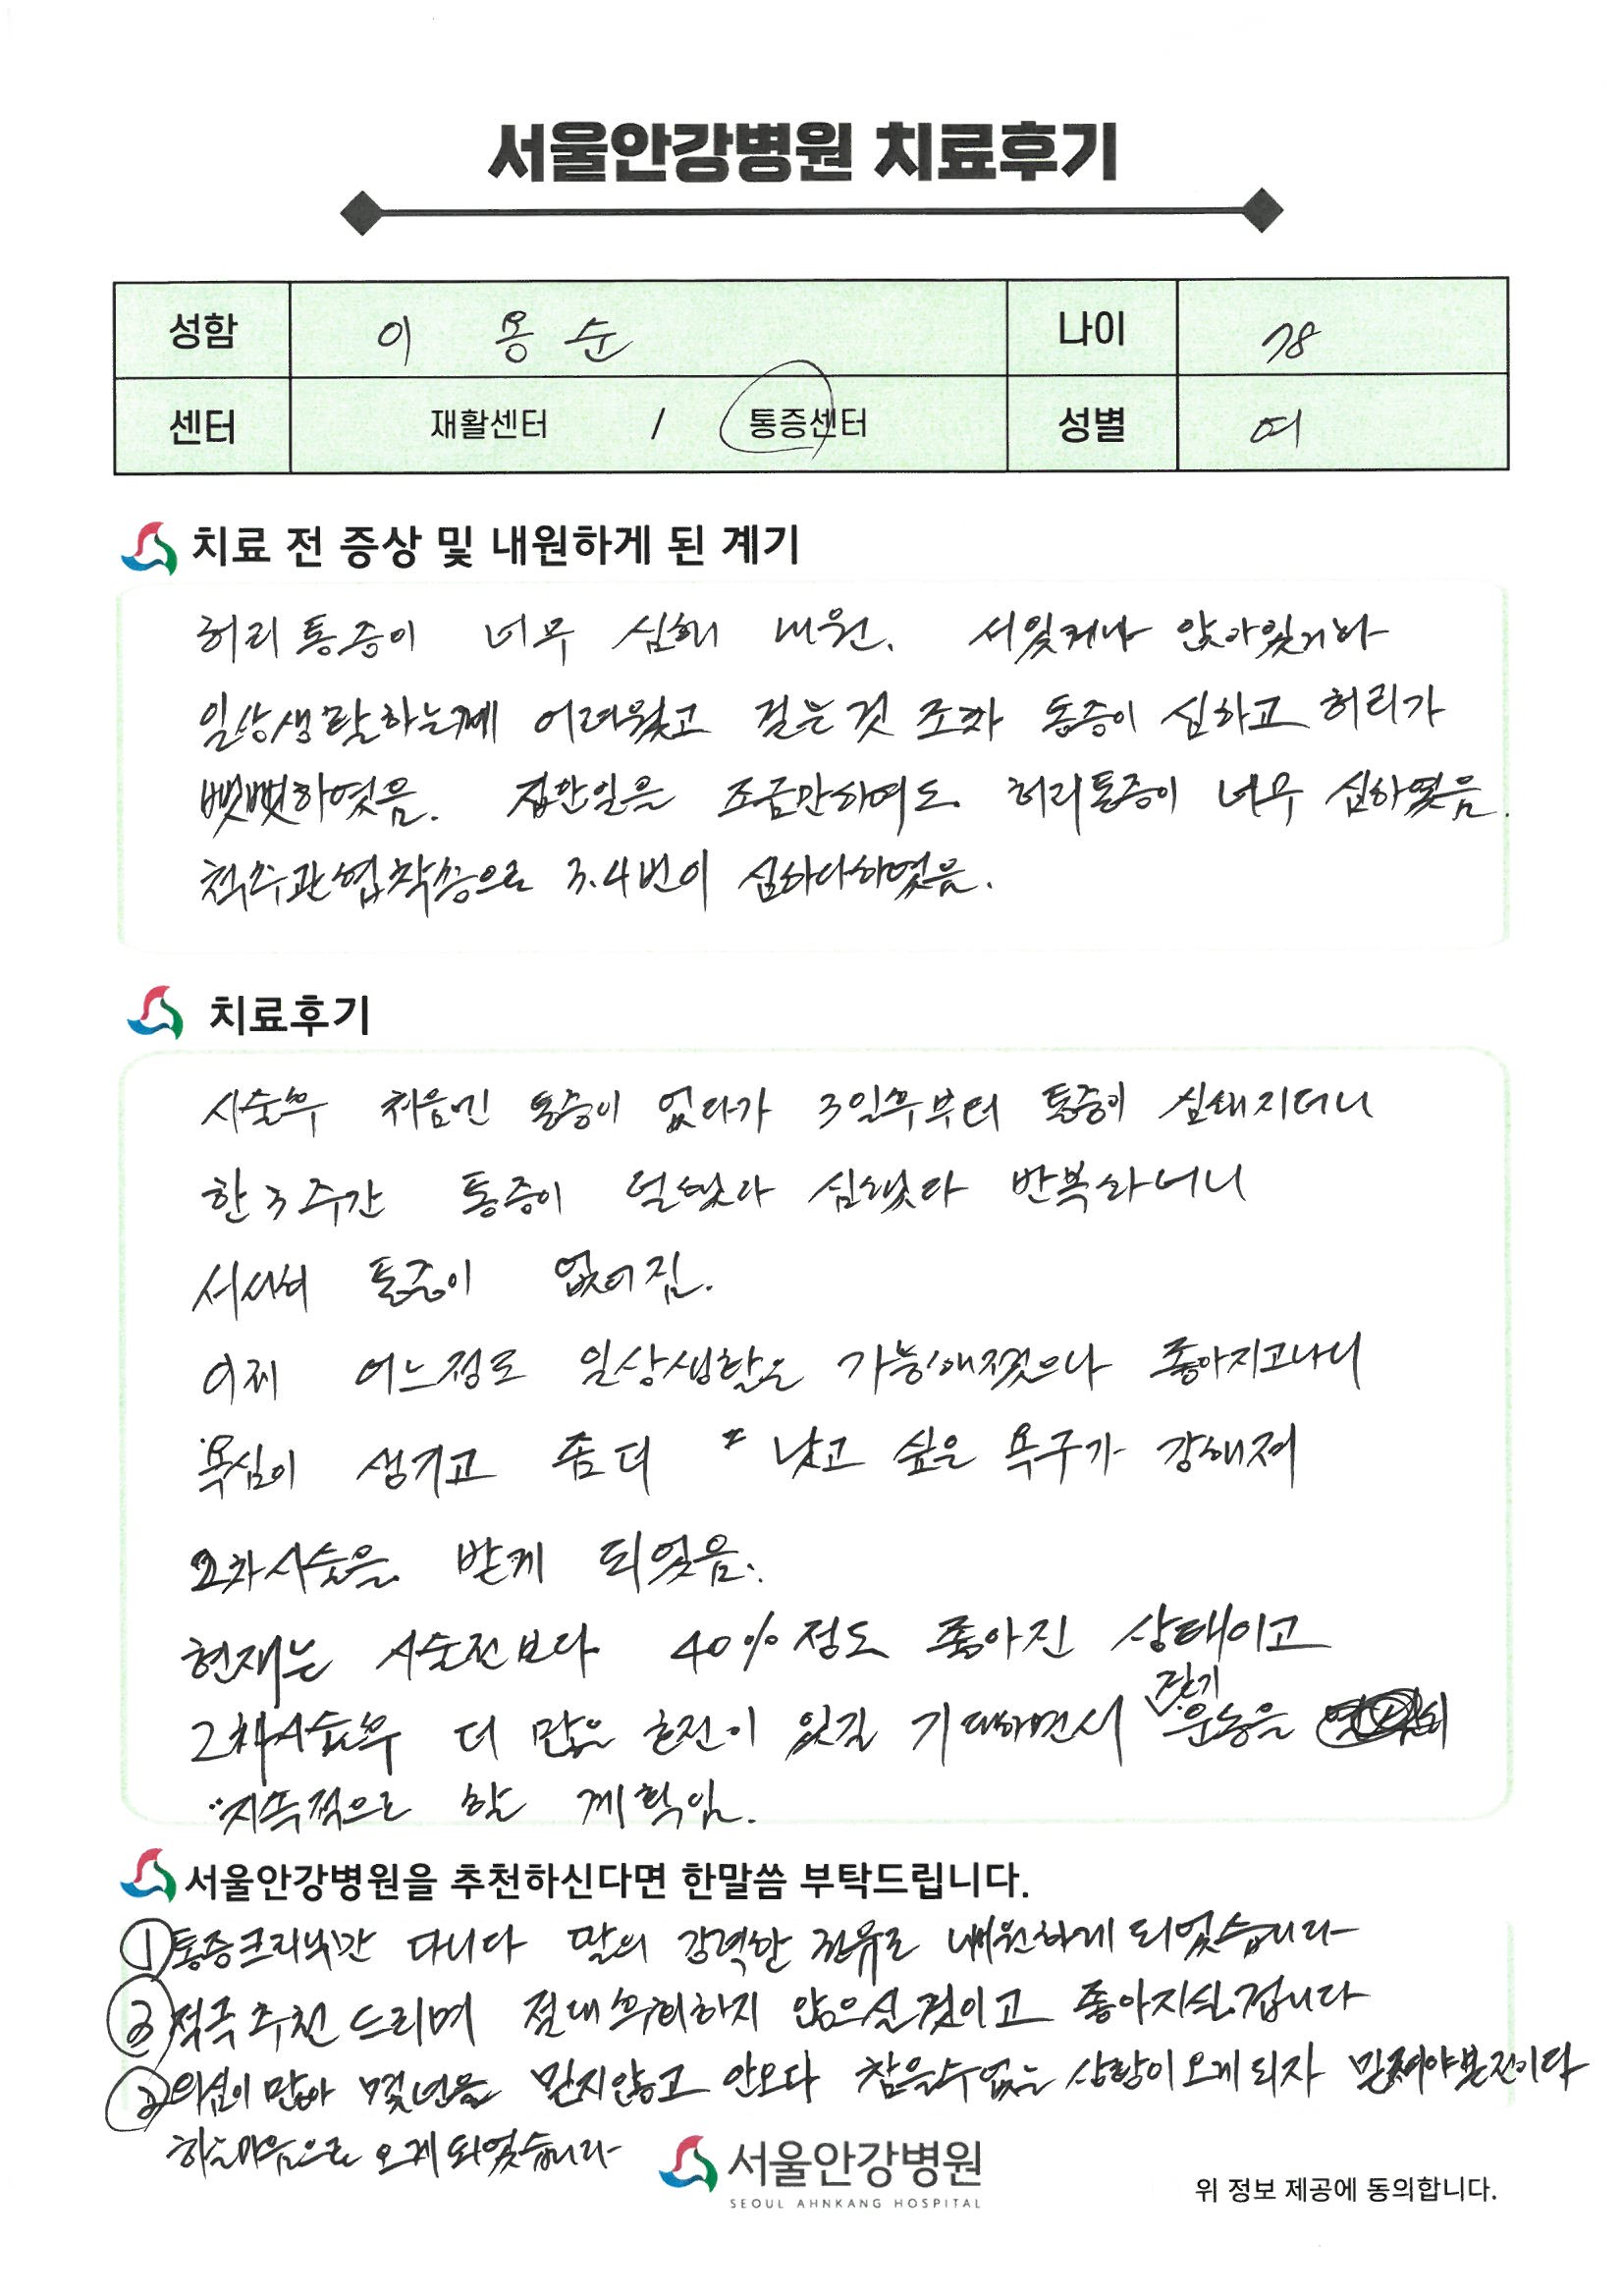 서울안강병원 치료후기
성함 이 몽 순 나이 78
센터 재활센터 / 통증센터 성별 여
치료 전 증상 및 내원하게 된 계기
허리통증이 너무 심해 내원. 서있거나 앉아있거나
일상생활하는게 어려웠고 걷는것 조차 통증이 심하고 허리가
뻣뻣하였음. 집안일을 조금만하여도 허리통증이 너무 심하였음.
척추관협착증으로 3.4번이 심하다하였음.
치료후기
시술후 처음엔 통증이 없다가 3일후부터 통증이 심해지더니
한 3주간 통증이 덜했다 심했다 반복하더니
서서히 통증이 없어짐.
이제 어느정도 일상생활은 가능해졌으나 좋아지고나니
욕심이 생기고 좀더 낫고 싶은 욕구가 강해져
2차시술을 받게 되었음.
현재는 시술전보다 40%정도 좋아진 상태이고
2차시술후 더 많은 호전이 있길 기대하면서 걷기 운동을
지속적으로 할 계획임.
서울안강병원을 추천하신다면 한말씀 부탁드립니다.
① 통증크리닉만 다니다 딸의 강력한 권유로 내원하게 되었습니다
③ 적극 추천 드리며 절대 후회하지 않으실것이고 좋아지실겁니다
② 의심이 많아 몇년을 믿지않고 안오다 참을수없는 상황이오게되자 믿져야본전이다
하는마음으로 오게되었습니다
서울안강병원
SEOUL AHNKANG HOSPITAL
위 정보 제공에 동의합니다.